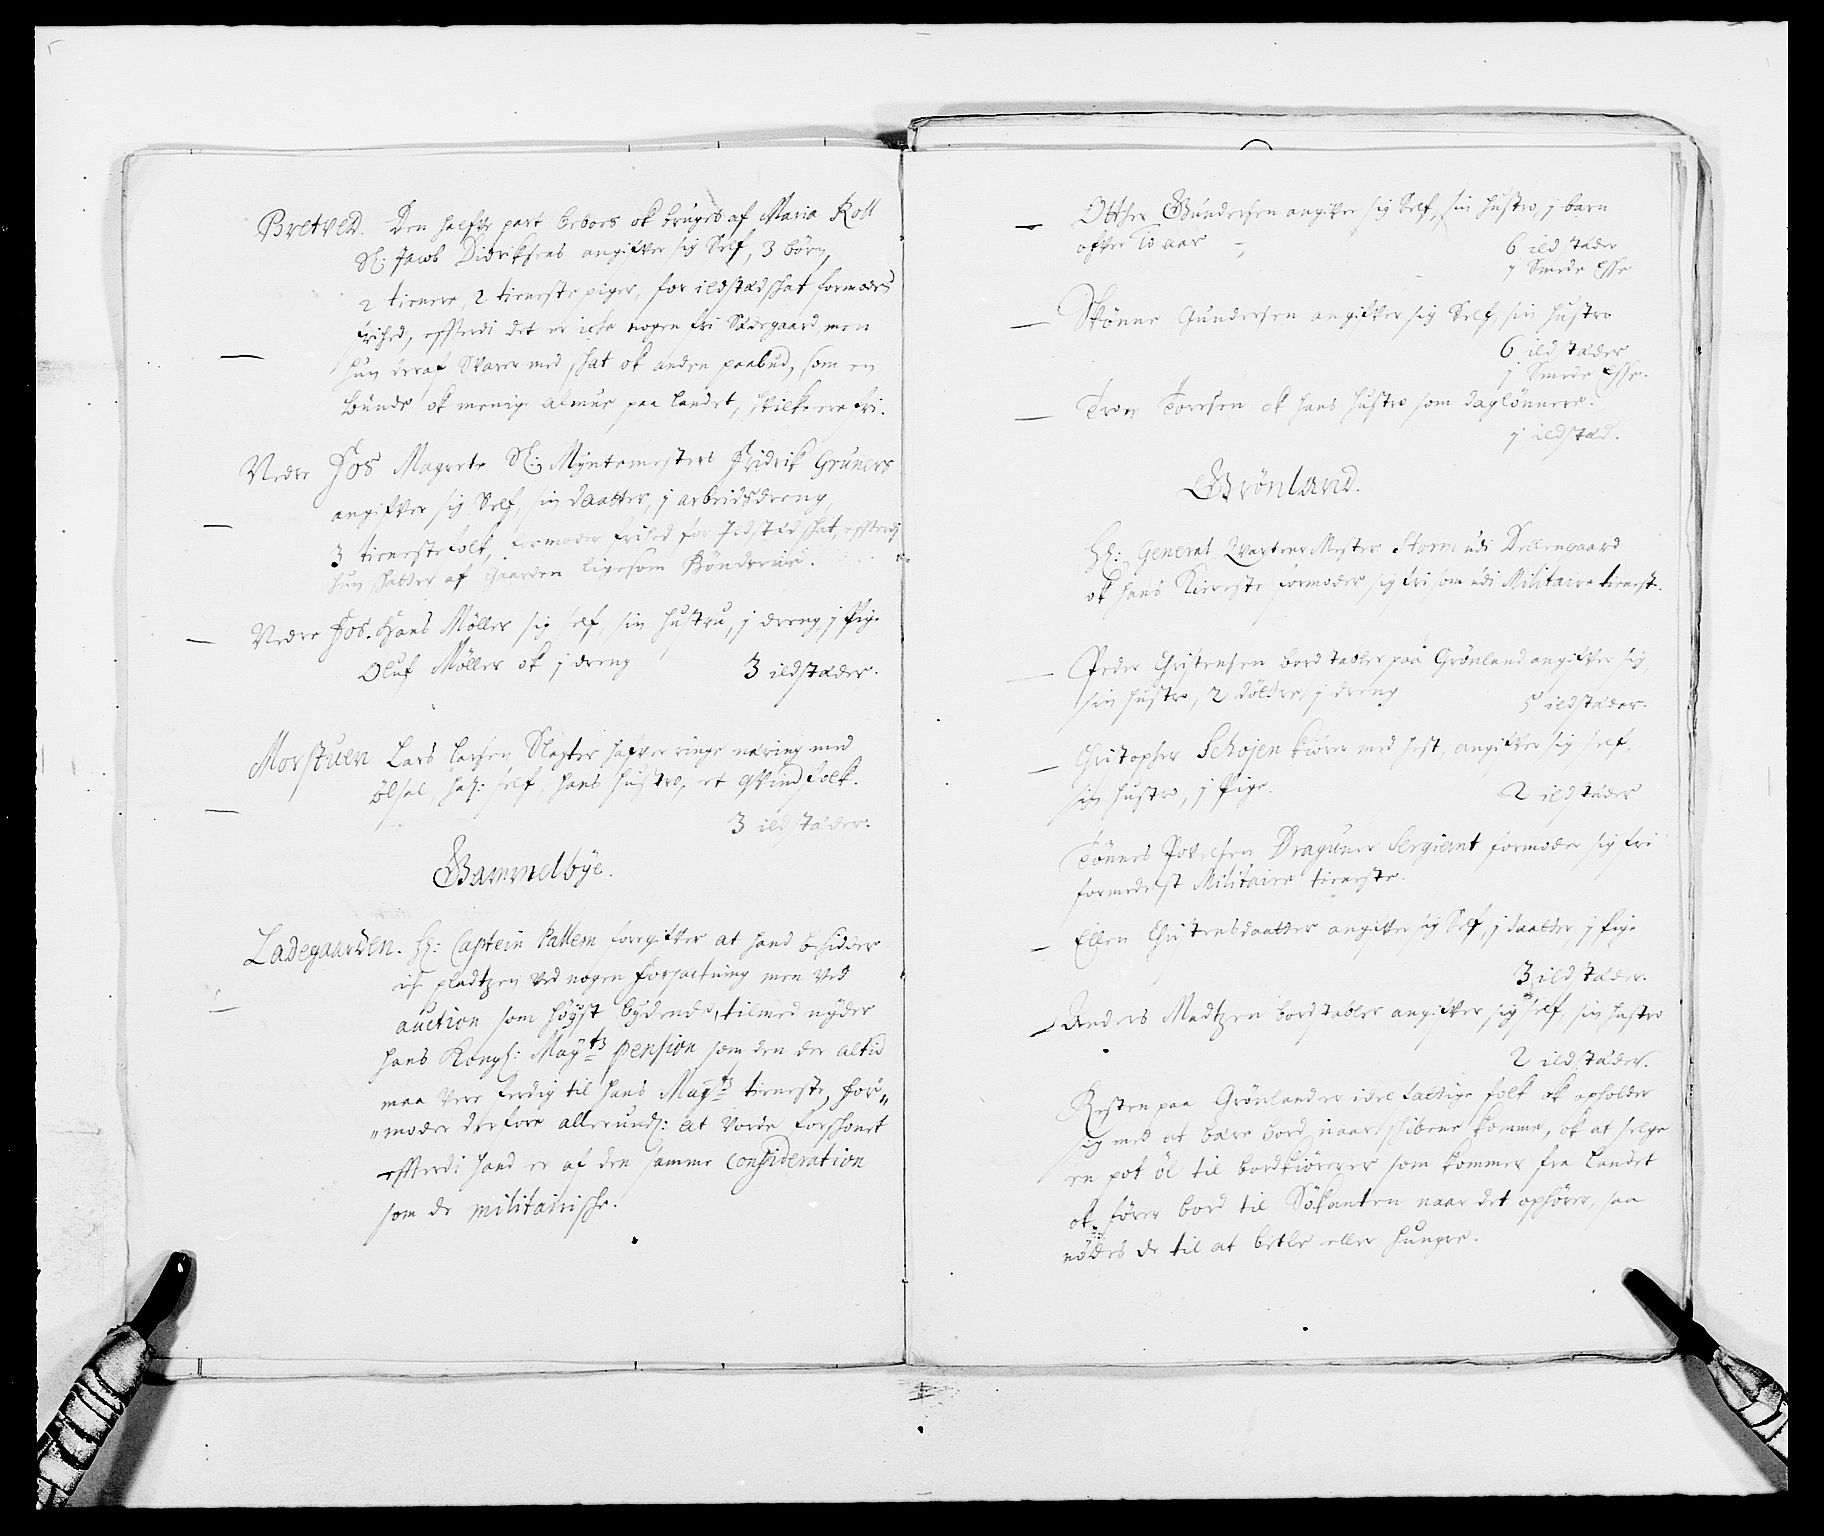 Bretved. Den halfve part beboes ok bruges af Maria Koll
Sl: Jacob Didriksens angifver sig Self, 3 børn,
2 tienere, 2 tieneste piger, for ildstædskat formodes
frihed, effterdi det er icke nogen fri Sædegaard, men
hun deraf svarer med skat ok anden paabud, som en
bunde ok menige almue paa landet, hvilke ere fri.
Nedre Fos Magrete Sl: Myntemesters Fridrik Gruners
angifver sig Self, sin daatter, j arbeidsdreng,
3 tienestefolk, formoder frihed for Ildstædskat, effterdj
hun skatter af Gaarden ligesom Bønderne.
Nedre Fos. Hans Møller sig self, sin hustru, j dreng, j Pige
Oluf Møller ok j dreng 3 ildstæder.
Morstuen Lars Larsen Slagter hafver ringe næring med
ølsal, self, hans hustro, et qvindfolk.
3 ildstæder.
Gammelbye.
Ladegaarden. Hr: Captein Kallem foregifver at hand besidder
pladtzen ved nogen forpactning men ved
auction som høyst bydende, tilmed nyder
hans Kongl: Mayts pension som den der altid
maa vere ferdig til hans Mayts tieneste, for„
„moder derfore allerund: at vorde forskonet
effterdi hand er af den samme Consideration
som de militairiske.
Otther Gundersen angifver sig Self, sin hustro, j barn
ofver 10 aar 6 ildstæder
j Smede Esse
Skønne Gundersen angifver sig Self, sin hustro
6 ildstæder
j Smede Esse.
Tron Toresen ok hans hustro som daglønnere.
j ildstæd.
Grønland.
Hr: General Qvarteer Mester Storm udi Dellengaard
ok hans Kiereste formoder sig fri som udi Militaire tienest.
Peder Christensen bordtabler paa Grønland angifver sig,
sin hustro, 2 døttre, j dreng 5 ildstæder.
Christopher Schojen kiører med hest, angifver sig self,
sin hustro, j Pige. 2 ildstæder
Tønnes Dragouner Sergieant formoder sig fri
formedelst Militaire tieneste.
Ellen Christensdaatter angifver sig Self, j daatter j Pige
3 ildstæder.
Anders Madtzen bordtabler angifver sig self, sin hustro
2 ildstæder.
Resten paa Grønland er idel fattige folk ok opholder
sig med at bære bord naar skibene komme, ok at selge
en pot øl til bordkiørerer som kommer fra Landet
ok fører bord til Søkanten naar det ophører, saa
nødes de til at betle eller hungre.